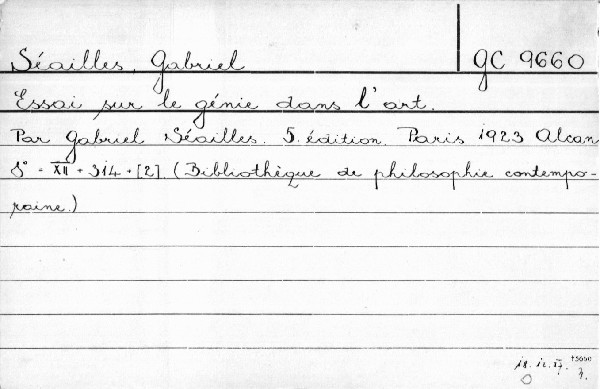 Séailles, Gabriel
GC 9660
Essai sur le génie dans l'art.
Par Gabriel Séailles. 5. édition. Paris 1923 Alcan
8° = XII + 314 + [2]. (Bibliothèque de philosophie contempo-
raine.)